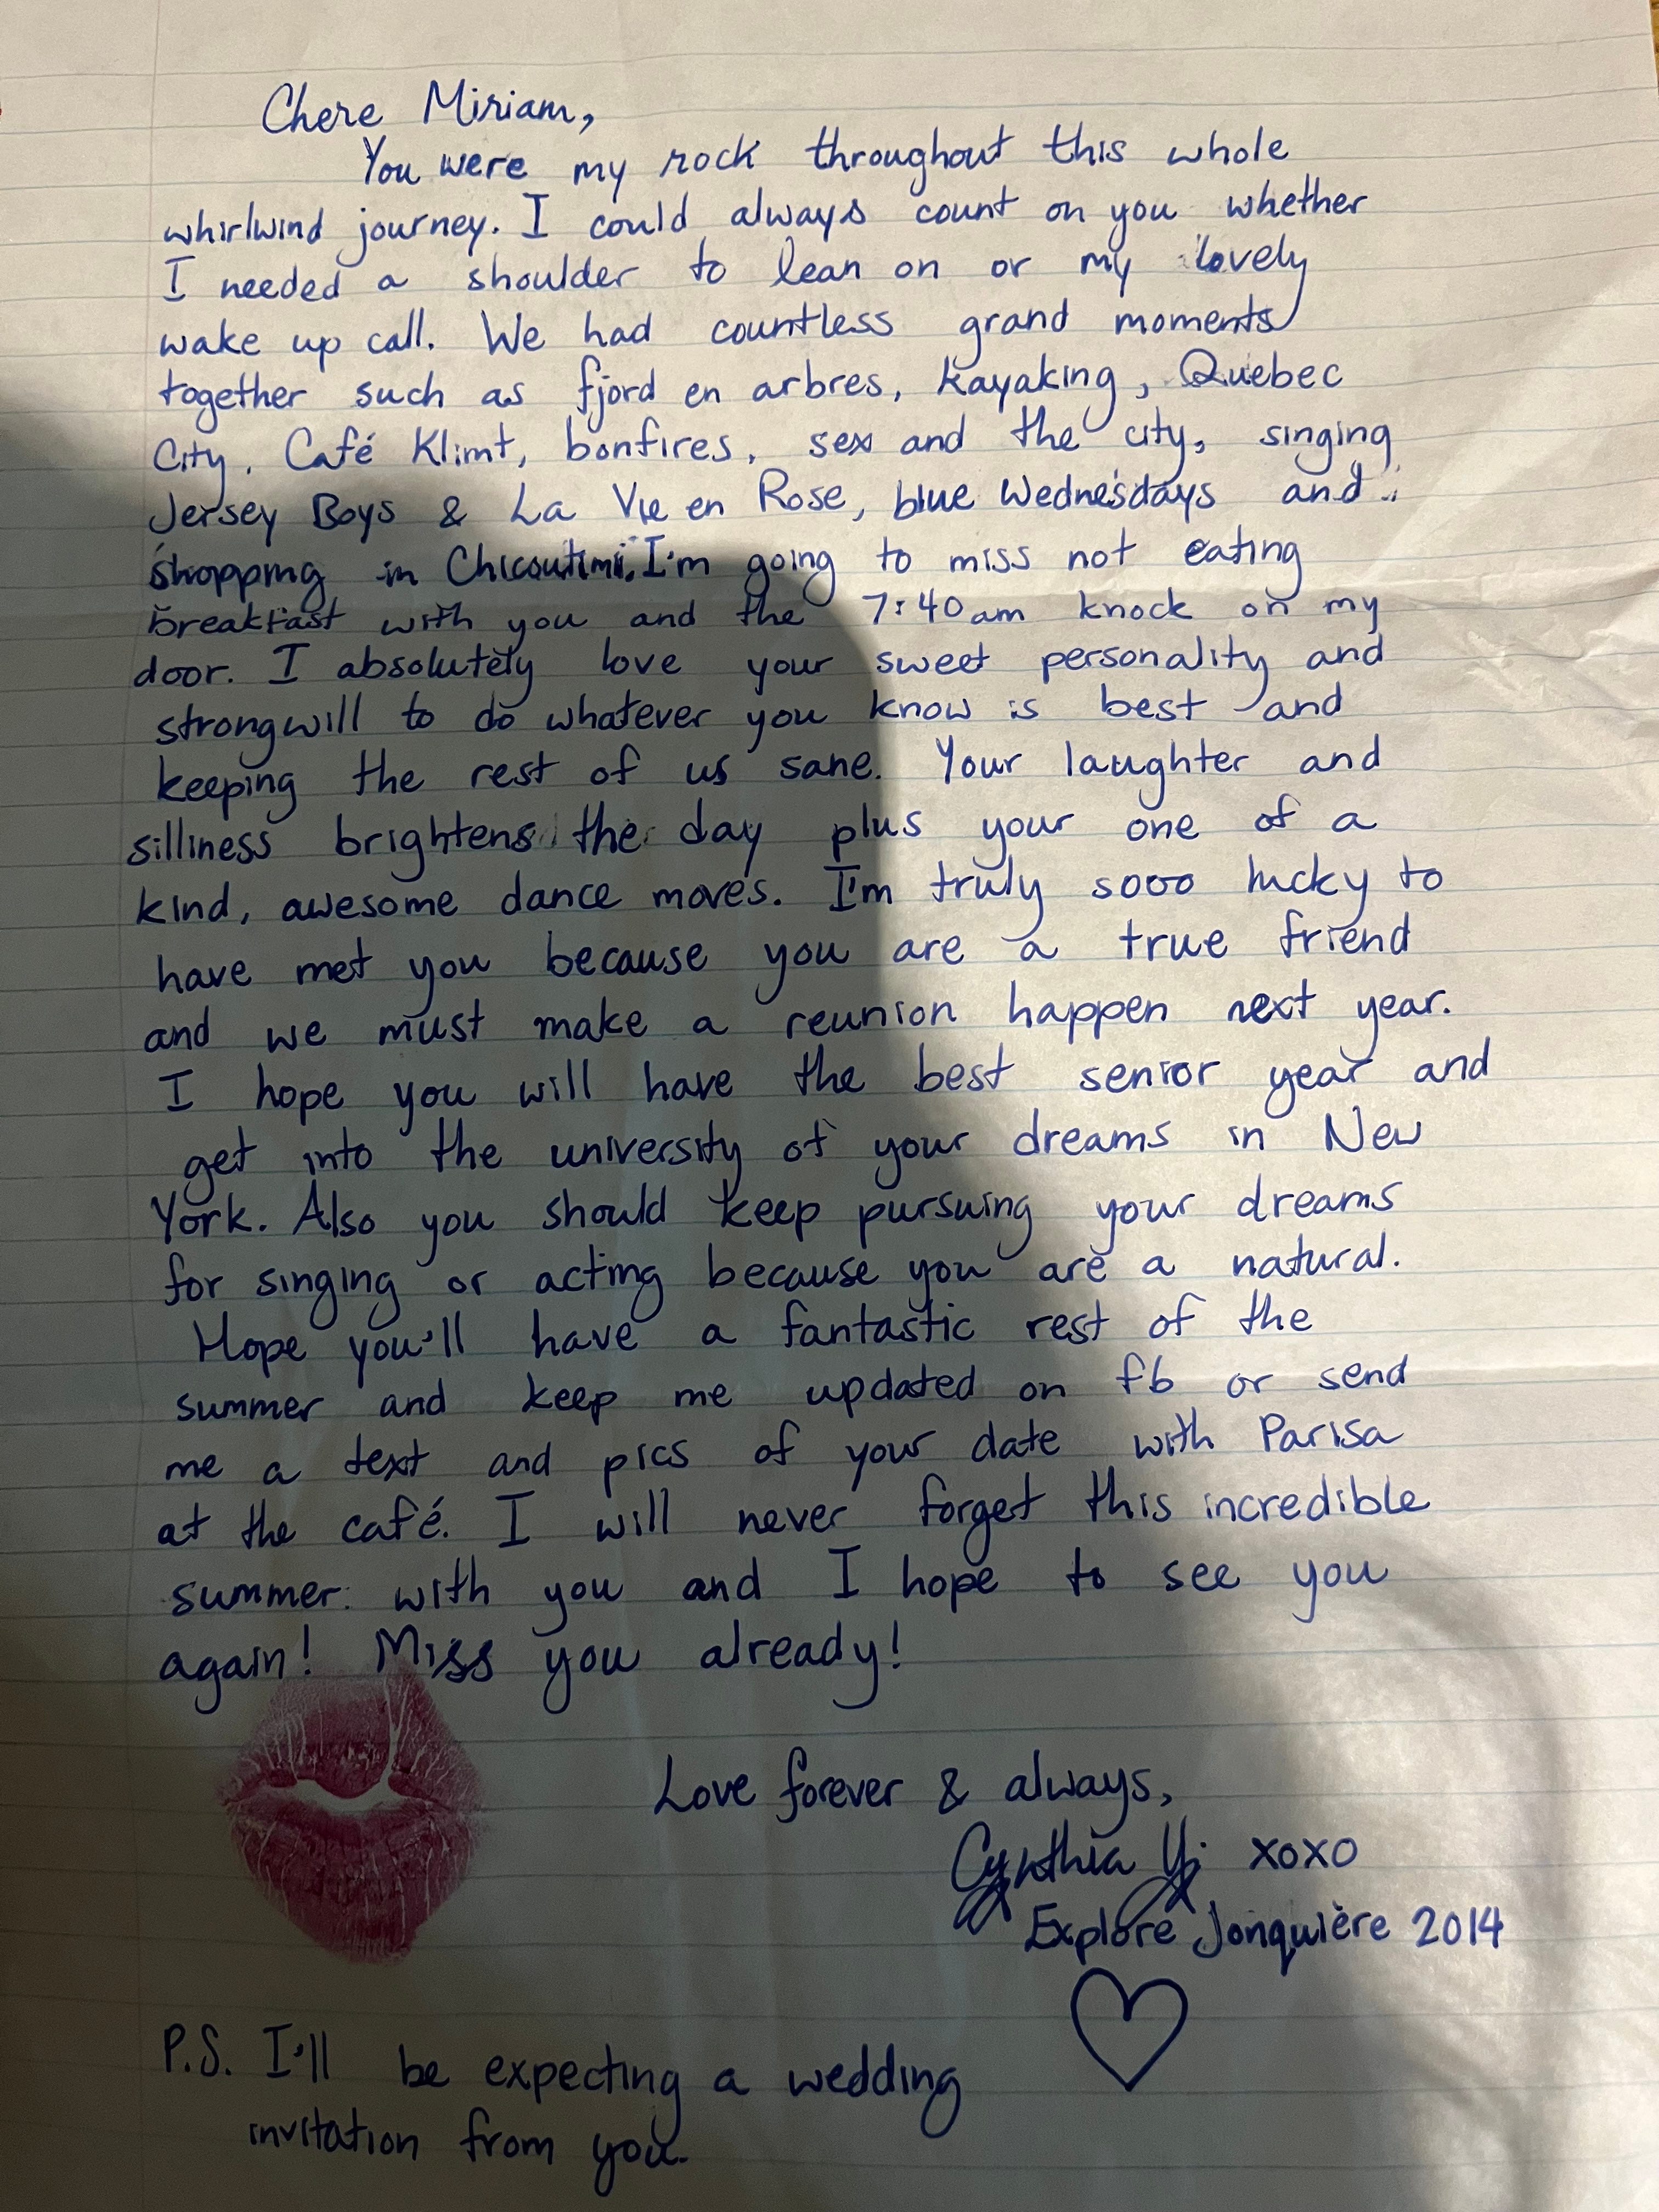 Chere Miriam,
You were my rock throughout this whole
whirlwind journey. I could always count on you whether
I needed a shoulder to lean on or my lovely
wake up call. We had countless grand moments
together such as fjord en arbres, kayaking, Quebec
City, Café Klimt, bonfires, sex and the city, singing
Jersey Boys & La Vie en Rose, blue Wednesdays and
shopping in Chicoutimi. I'm going to miss not eating
breakfast with you and the 7:40am knock on my
door. I absolutely love your sweet personality and
strongwill to do whatever you know is best and
keeping the rest of us sane. Your laughter and
silliness brightens the day plus your one of a
kind, awesome dance moves. I'm truly sooo lucky to
have met you because you are a true friend
and we must make a reunion happen next year.
I hope you will have the best senior year and
get into the university of your dreams in New
York. Also you should keep pursuing your dreams
for singing or acting because you are a natural.
Hope you'll have a fantastic rest of the
summer and keep me updated on fb or send
me a text and pics of your date with Parisa
at the café. I will never forget this incredible
summer with you and I hope to see you
again! Miss you already!
Love forever & always,
Cynthia xoxo
Explore Jonquière 2014
P.S. I'll be expecting a wedding
invitation from you.